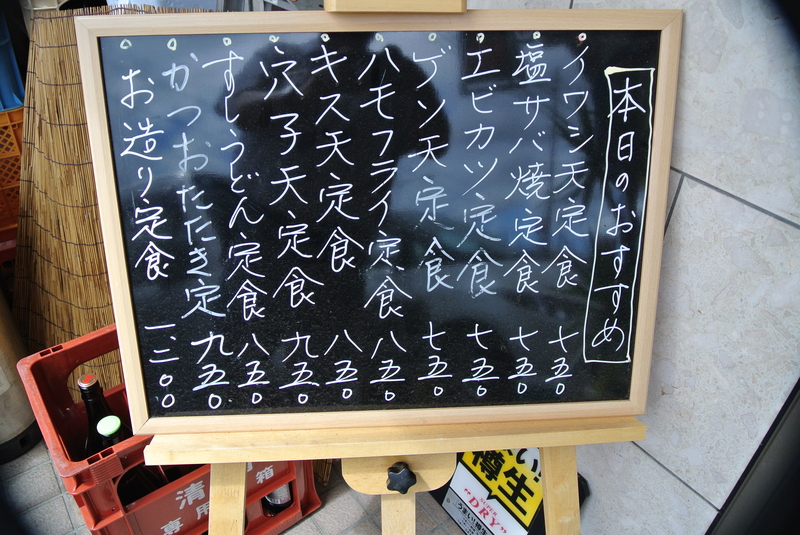 本日のおすすめ
イワシ天定食 七五〇
塩サバ焼定食 七五〇
エビカツ定食 七五〇
ゲソ天定食 七五〇
ハモフライ定食 八五〇
キス天定食 八五〇
穴子天定食 九五〇
すしうどん定食 八五〇
かつおたたき定 九五〇
お造り定食 一二〇〇
清
専用
箱
樽生
SUPER
"DRY"